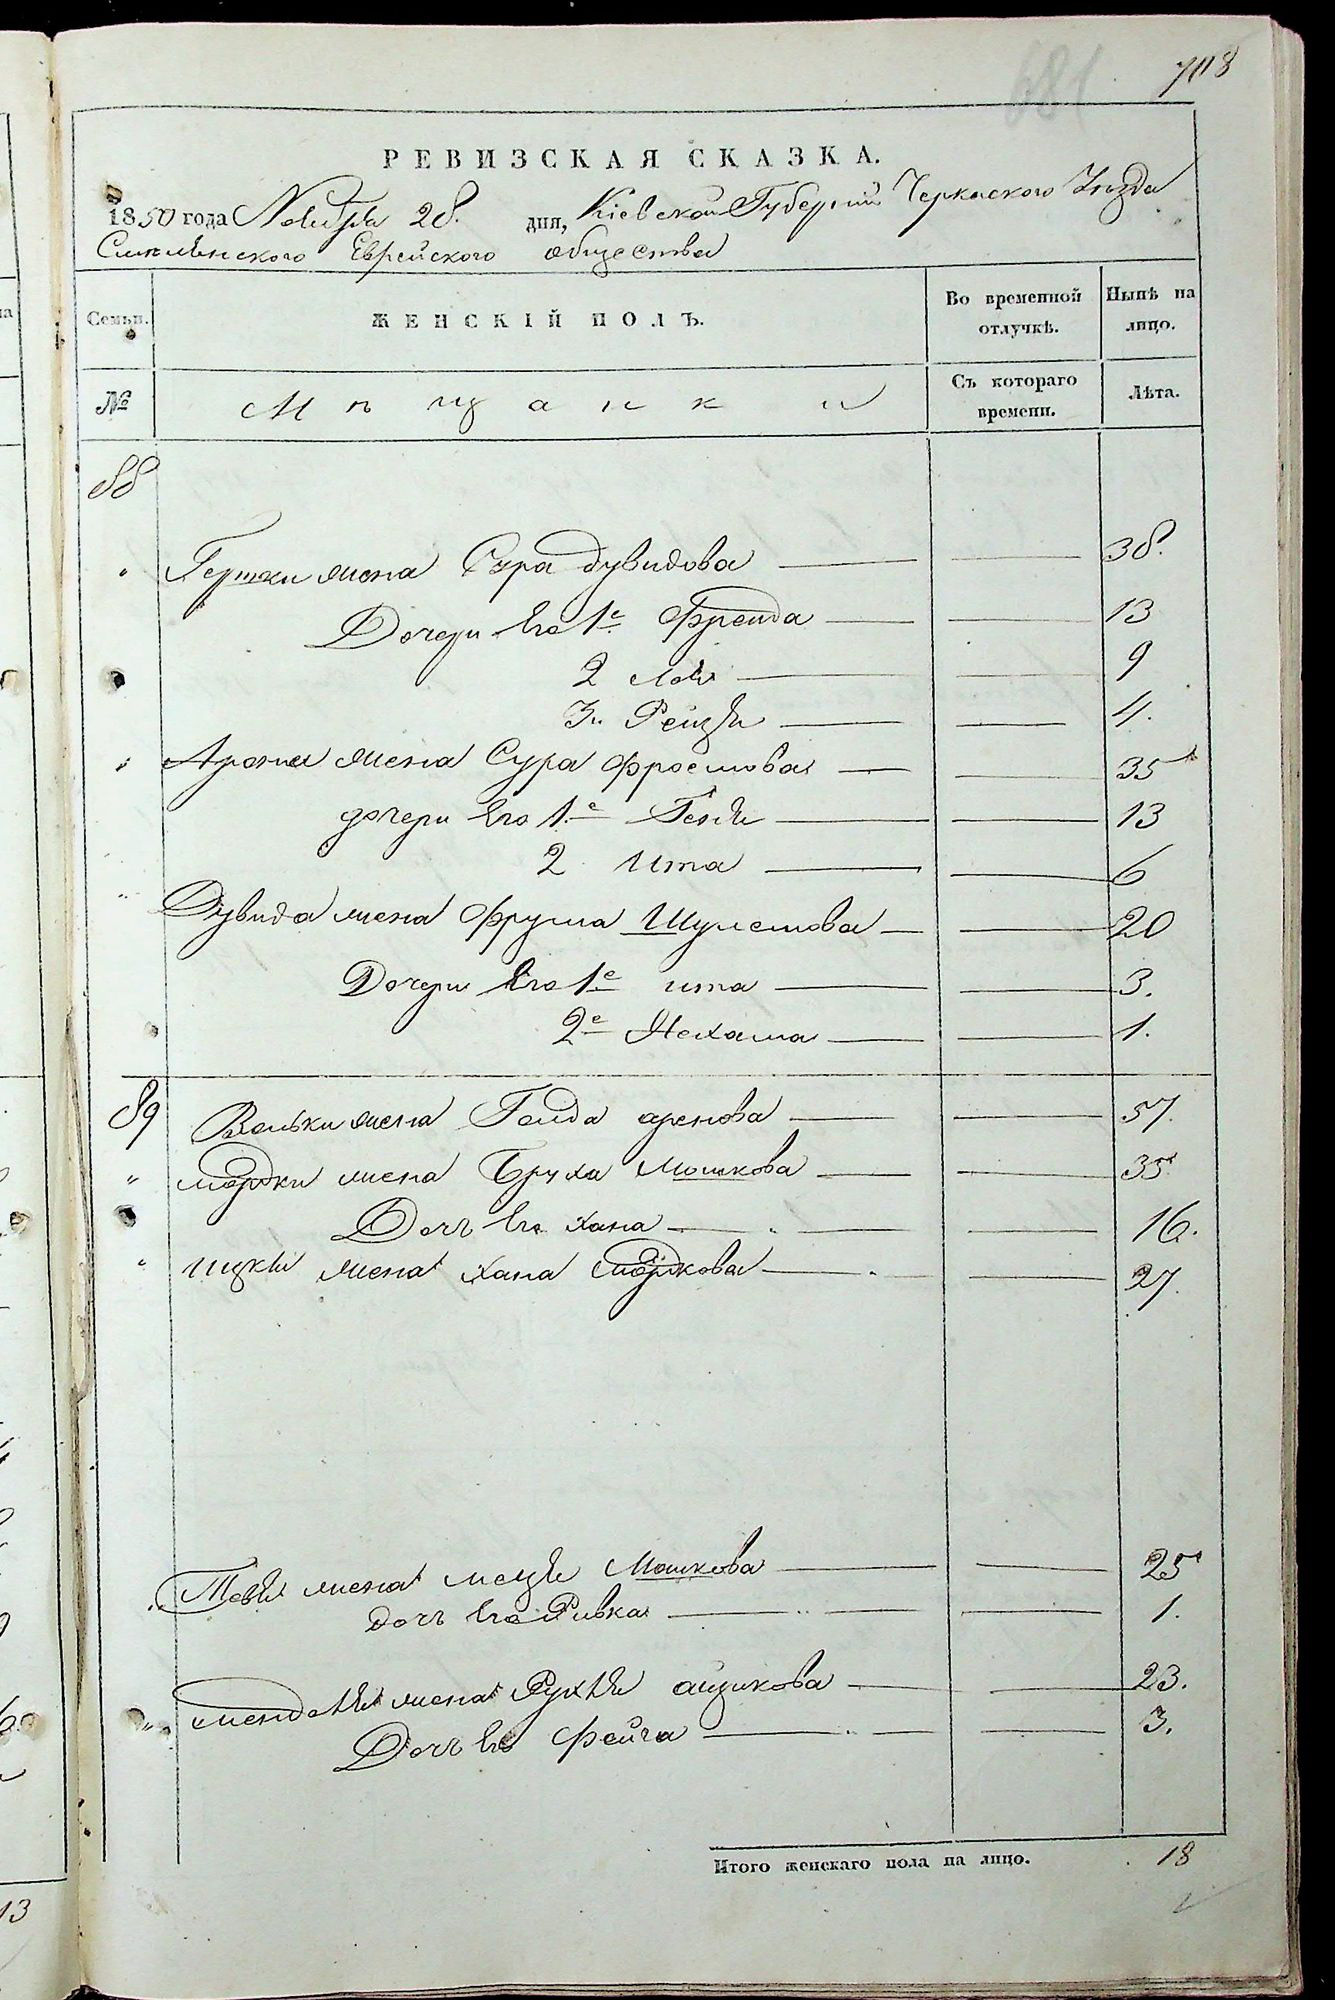 681 708
РЕВИЗСКАЯ СКАЗКА.
1850 года Ноября 28. дня, Кіевской Губерніи Черкаского Уѣзда
Смелянского Еврейского общества
Семьи. ЖЕНСКІЙ ПОЛЪ. Во временной отлучкѣ. Нынѣ на лицо.
№ Мѣщанки Съ котораго времени. Лѣта.
88
" жена Сура Дувидова — — 38.
Дочери Его 1е Фрейда — — 13
2 — — 9
3. Рейзя — — 4.
" жена Сура Фроемова — — 35
дочери Его 1е Геня — — 13
2 Ита — — 6
" Дувида жена Фрума Шулемова — — 20
Дочери Его 1е ита — — 3.
2е Нехама — — 1.
89 Вольки жена Голда аронова — — 57.
" мордки жена Бруха Мошкова — — 35
Дочь Его хана — " — — 16.
" ицки жена хана мордкова — " — — 27.
" Тевя жена Мошкова — — 25
дочь Его Ривка — " — — 1.
" менделя жена Рухля айзикова — — 23.
Дочь Его Фейга — " — — 3.
Итого женскаго пола на лицо. 18